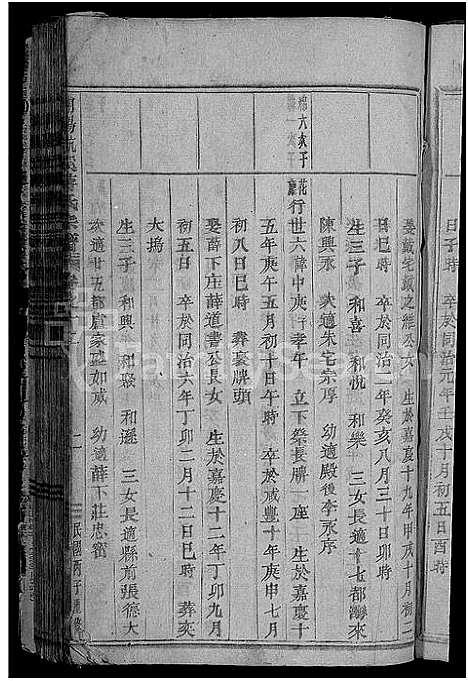 日子時　卒於同治元年壬戌十月初五日酉時
娶戴宅戴之維公女　生於嘉慶十九年甲戌十月初二
日巳時　卒於同治二年癸亥八月三十日卯時
生三子　和喜　和悅　和樂　三女長適十七都灣來
陳興永　次適朱宅宗序　幼適殿後李永序
行世六諱中庚行孝午　立下祭長牌一座　生於嘉慶十
五年庚午五月初十日午時　卒於咸豐十年庚申七月
初八日巳時　葬裹牌頭
娶薛下庄薛道書公長女　生於嘉慶十二年丁卯九月
初五日　卒於同治六年丁卯二月十二日巳時　葬亥
大塢
生三子　和興　和聚　和遜　三女長適縣前張德大
次適廿五都盧家礎如咸　幼適薛下莊忠賓
二
民國丙子重修